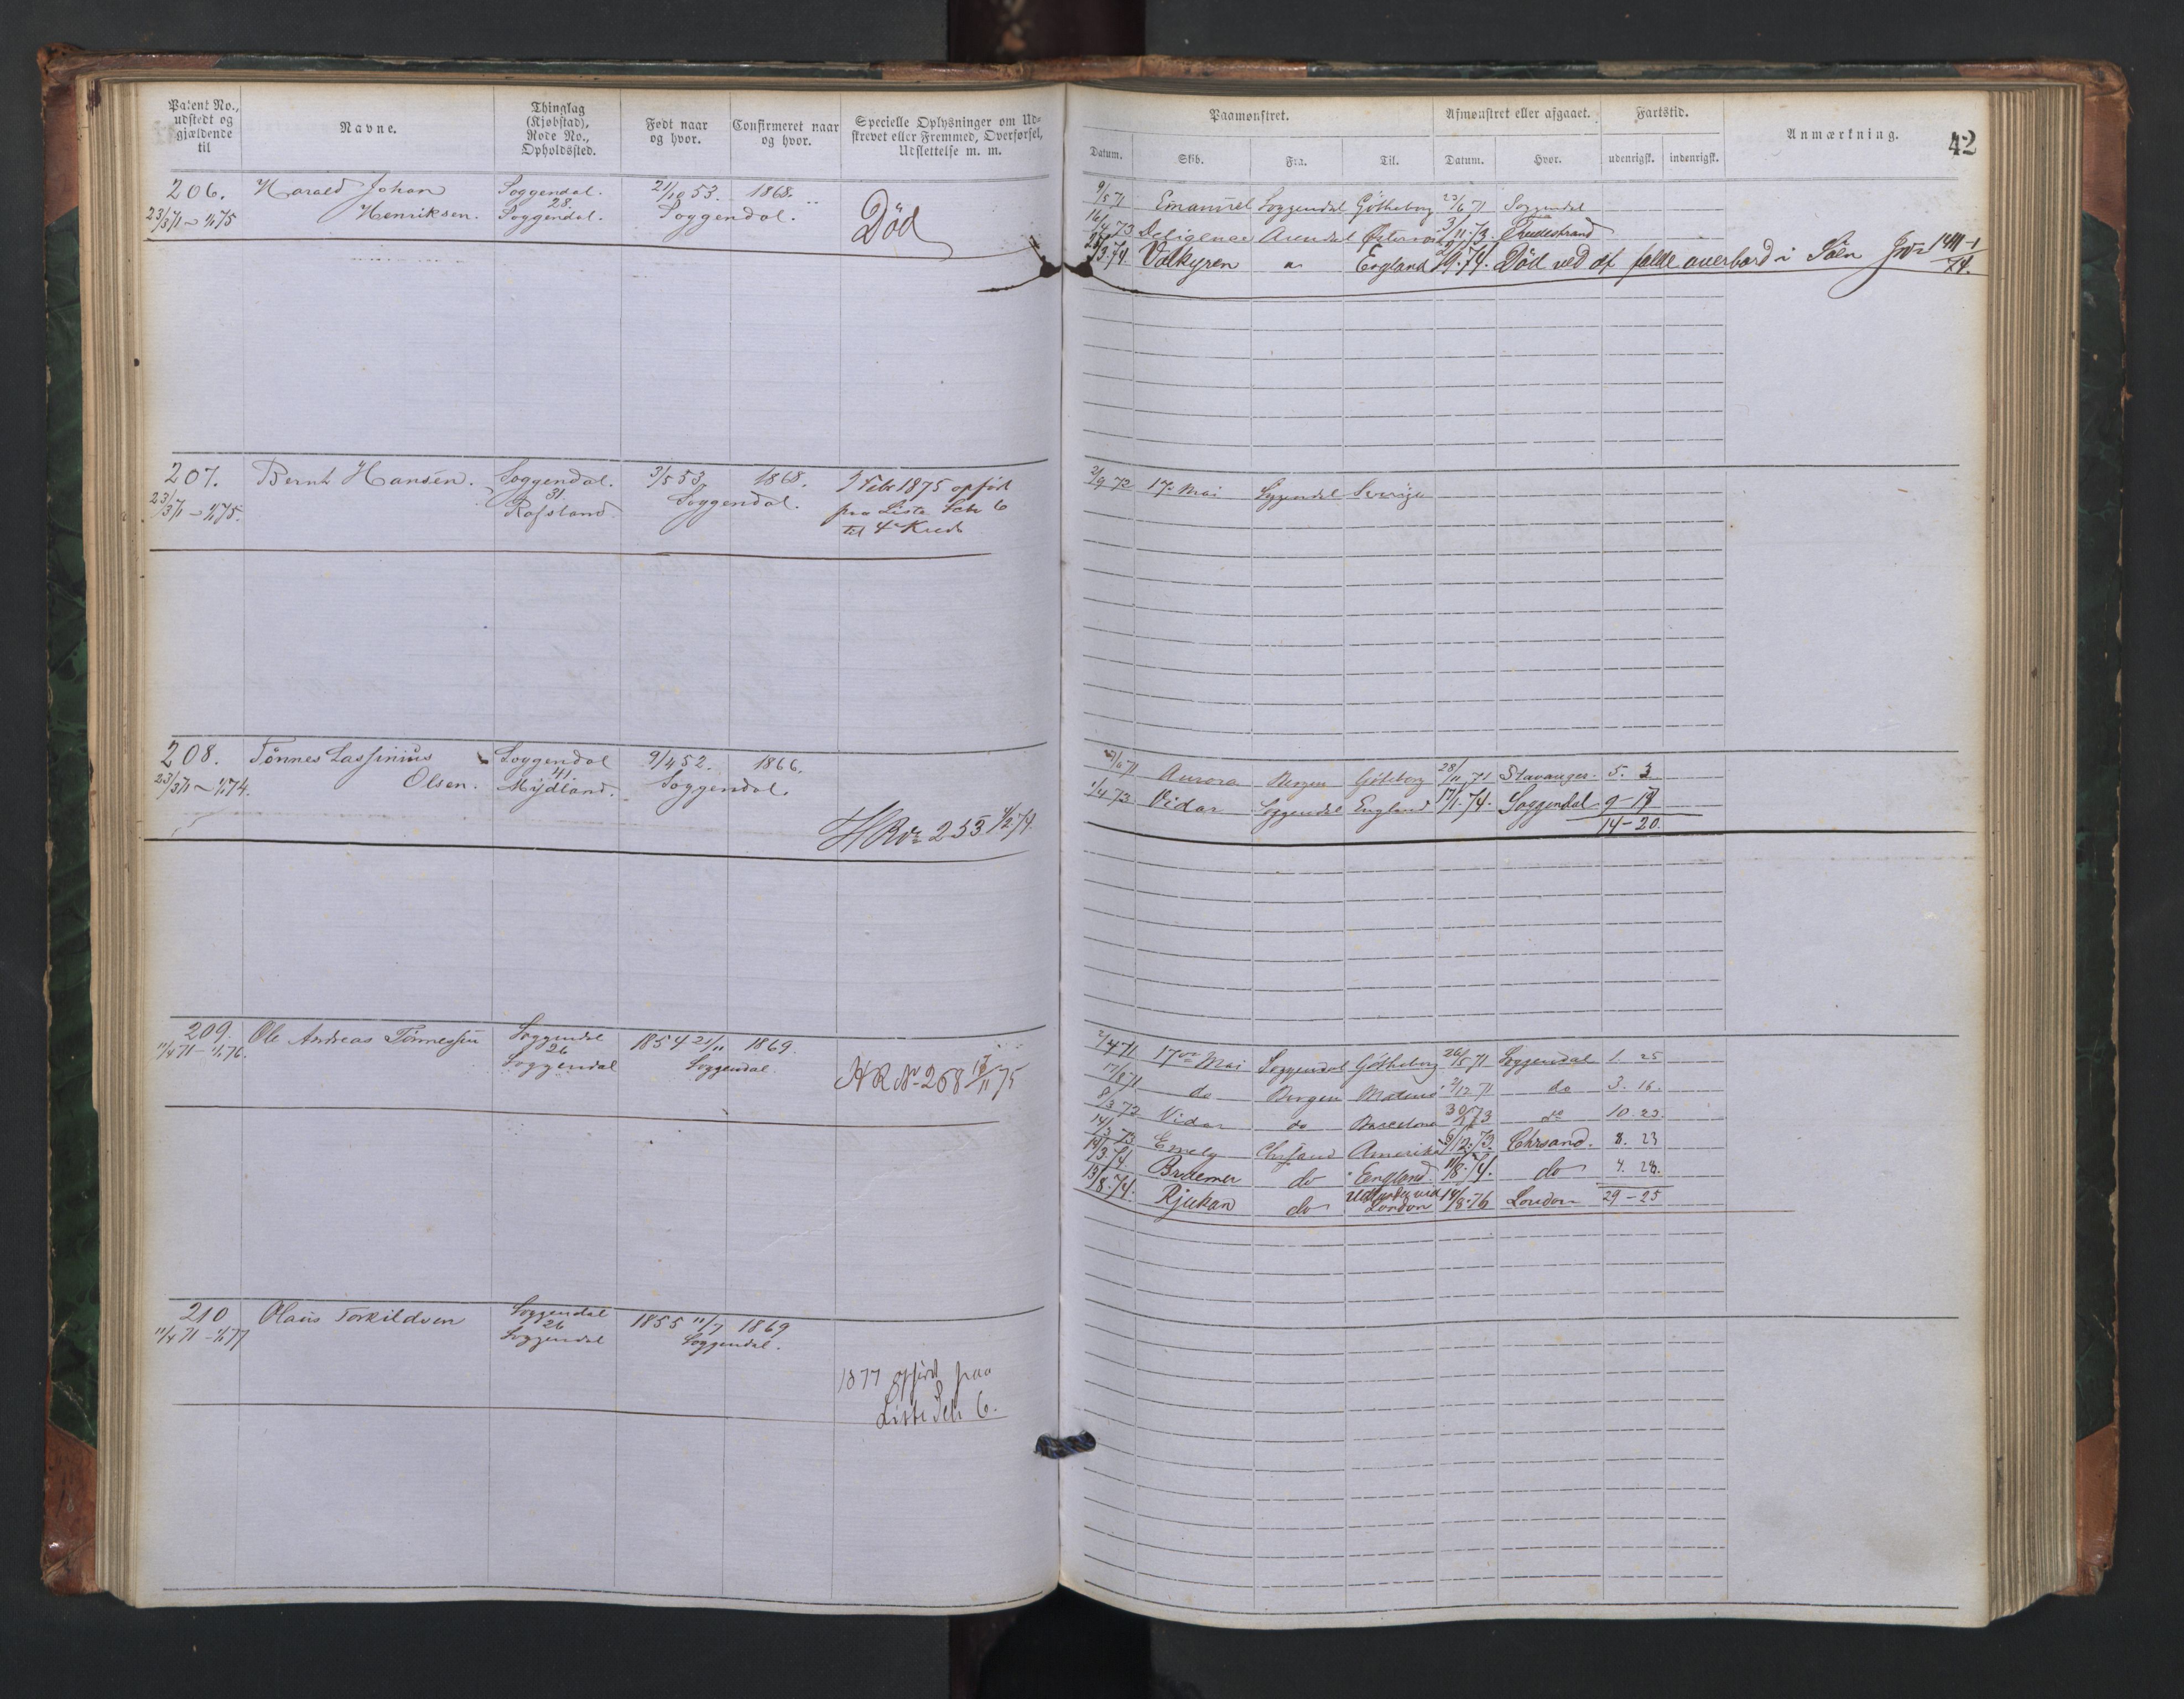 Patent No., udstedt og gjældende til
Navne.
Thinglag (Kjøbstad), Rode No., Opholdssted.
Født naar og hvor.
Confirmeret naar og hvor.
Specielle Oplysninger om Udstrevet eller Fremmed, Overførsel, Udslettelse m. m.
Paamønstret.
Afmønstret eller afgaaet.
Fartstid.
Anmærkning.
42
Datum.
Skib.
Fra.
Til.
Datum.
Hvor.
udenrigsk.
indenrigsk.
206. Harald Johan Soggendal. 21/10 53. 1868.
23/3 71 - 1/1 75 Henriksen. 28. Soggendal. Soggendal.
Død
9/5 71 Emanuel Soggendal Götheborg 23/6 71 Soggendal
16/4 73 Deligence Arendal 3/11 73.
25/3 74. Valkyren England 9.74. Død ved at falde overbord i Søen
207. Bernt Hansen. Soggendal. 3/5 53 1868. I Febr 1875 opført
23/3 71 - 1/1 75. 31. Soggendal. fra Liste Litr 6
Rafsland. til 4 Kreds
2/9 72 17 Mai Soggendal Sverige
208. Tønnes Lassinius Soggendal 9/4 52. 1866.
23/3 71 - 1/1 74. Olsen. 41. Mydland. Soggendal.
HR No 253 4/2 74.
21/6 71 Aurora Bergen Göteborg 28/11 71 Stavanger. 5. 3
1/4 73 Vidar Soggendal England 17/1. 74. Soggendal 9 - 17
14 - 20.
209. Ole Andreas Tønnessen Soggendal 1854 21/11 1869.
11/4 71 - 1/1 76. 26 Soggendal Soggendal.
HR No 268 75
2/4 71 17de Mai Soggendal Götheborg 26/5 71 Soggendal 1. 25
17/8 71 do Bergen 2/12 71 do 3. 16.
8/3 72 Vidar do Barcelona 30/1 73 do 10. 23.
14/3 73 Emely Chrsand Amerika 6/12. 73. Chrsand. 8. 23
14/3. 74 do England 11/8. 74. do 4. 28.
13/8. 74. Rjukan do London 14/8. 76 London 29 - 25
210 Olaus Torkildsen Soggendal 1855 11/7 1869
11/4 71 - 1/1 77 26 Soggendal Soggendal.
1877 opført paa
Liste Litr 6.